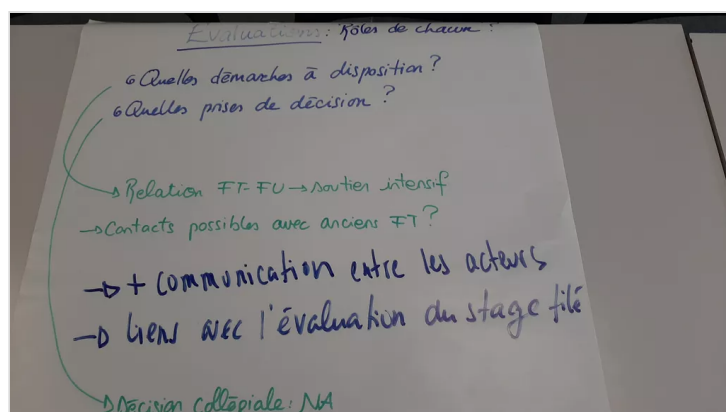 Evaluations : Rôles de chacun :
↳ Quelles démarches à disposition ?
↳ Quelles prises de décision ?
→ Relation FT-FU → soutien intensif
→ Contacts possibles avec anciens FT ?
→ + communication entre les acteurs
→ liens avec l'évaluation du stage filé
→ Décision collégiale : NA